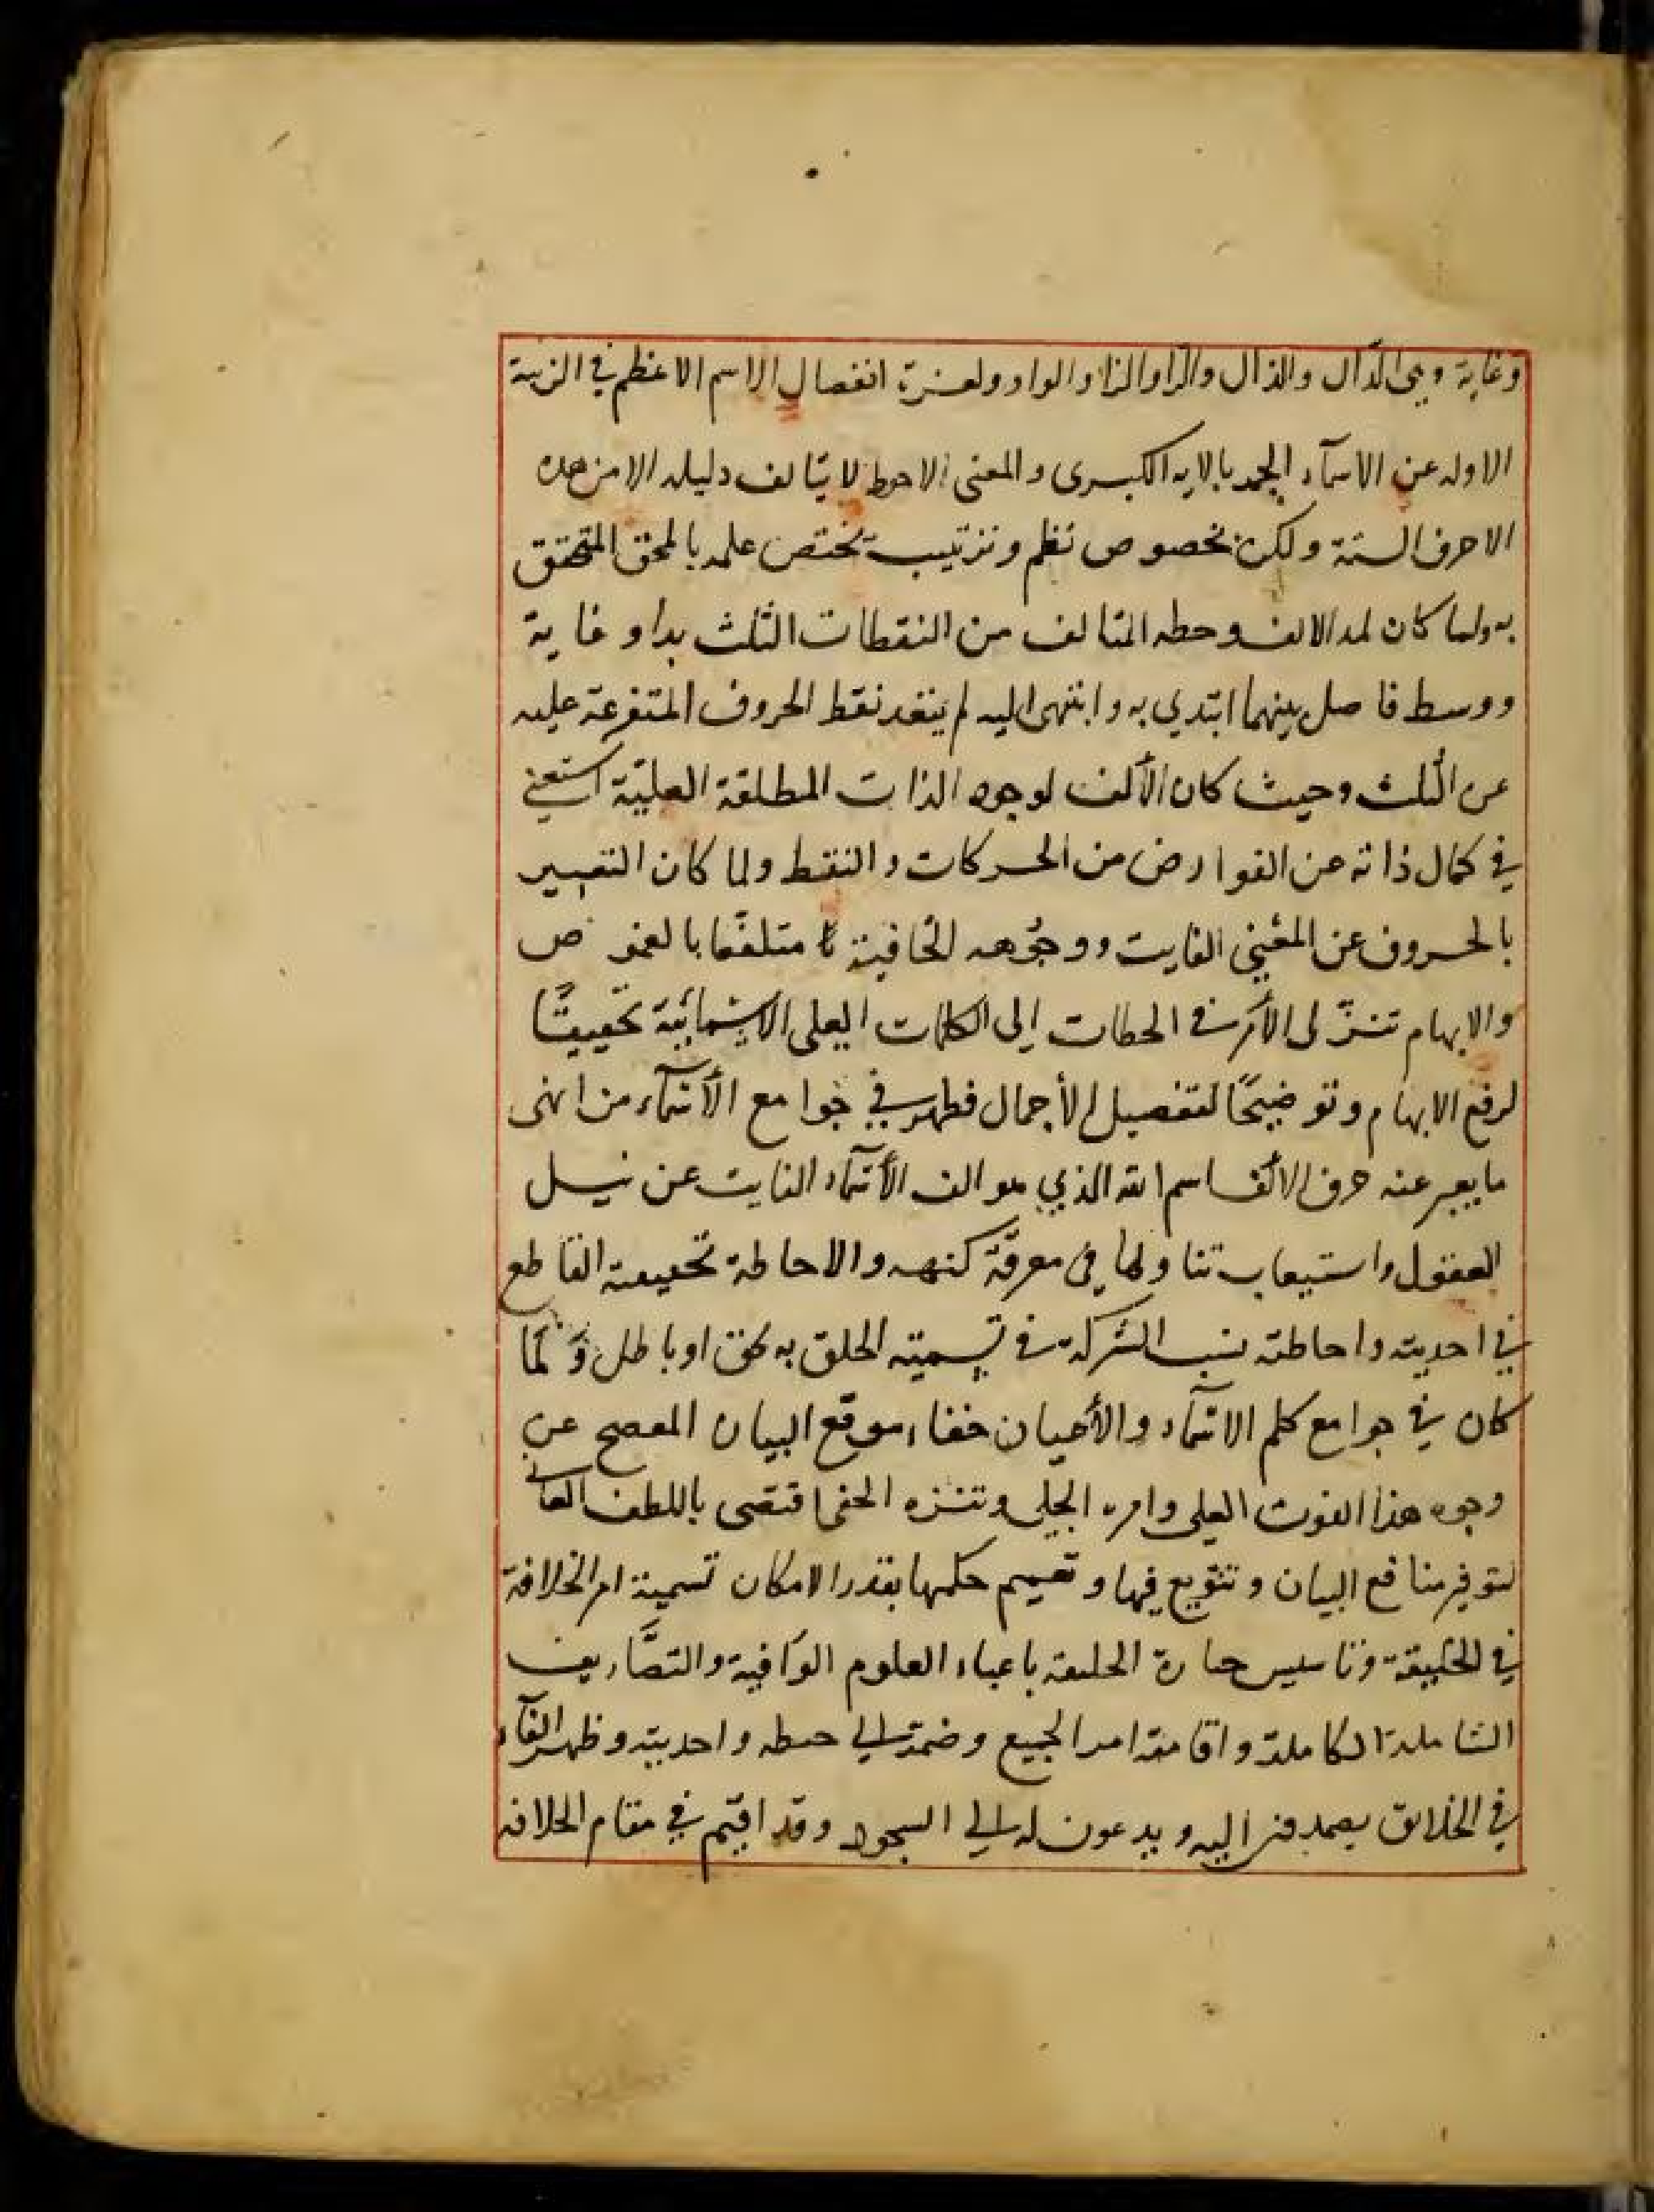 وغاية وهي الدّال والذال والرا والزا والواو ولعزة انفصال الاسم الاعظم في الرتبة
الاوله عن الاسمآء الجمه بالايه الكبرى والمعنى الاحوط لا يتالف دليله الا من هده
الاحرف الستة ولكن بخصوص نظم وترتيب يختص علمه بالمحق المتحقق
به ولما كان لمد الالف وحطه المتالف من النقطات الثلث بدا و غاية
ووسط فاصل بينهما ابتدي به وانتهى اليه لم ينفد نقط الحروف المتفرعة عليه
عن الثلث وحيث كان الألف لوجوه الذات المطلقة العليّة استغني
في كمال ذاته عن العوارض من الحركات والنقط ولما كان التعبير
بالحروف عن المغيني الفايت ووجوهه الخافية متلفعا بالغموض
والابهام تنزّل الأمر في الحطات إلى الكلمات العلى الاسمائية تحقيقًا
لرفع الابهام وتوضيحًا لتفصيل الأجمال فظهر في جوامع الأسمآء من انهى
ما يعبر عنه حرف الالف اسم الله الذي هو الف الأسمآء الفايت عن نيل
العقول واستيعاب تناولها في معرفة كنهه والاحاطة بحقيقته القاطع
في احديته واحاطته نسب الشركة في تسمية الخلق به بحق او باطل ولمّا
كان في جوامع كلم الاسمآء والأعيان خفاء موقع البيان المفصح عن
وجوه هذا الفوت العلى وامره الجلى وتنزه الخفى اقتضى باللطف
لتوفير منافع البيان وتنويع فيها و تعميم حكمها بقدر الامكان تسمية امر الخلافة
في الخليقة وتاسيس الخليفة باعباء العلوم الوافية والتصَّاريف
الشاملة الكاملة واقامة امر الجميع وضمة الي حيطه واحديته وظهر
في الخلائق يصمدون اليه ويدعون له الي السجود وقد اقيم في مقام الخلافه